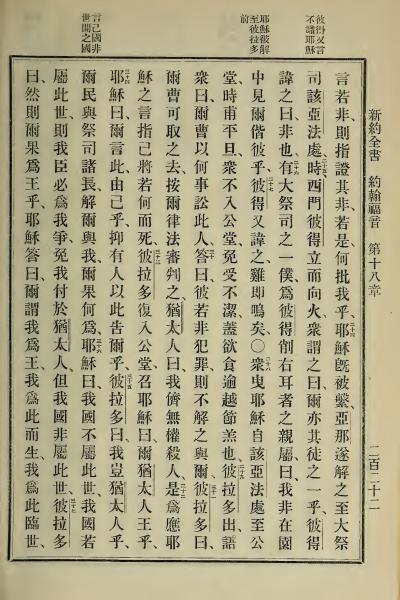 新約全書 約翰福音 第十八章 二百三十二
彼得又言不識耶穌
耶穌被解至彼拉多前
言己國非世間之國
言若非、則指證其非、若是、何批我乎、二十四耶穌旣被繫、亞那遂解之至大祭
司該亞法處、二十五時西門彼得立而向火、衆謂之曰、爾亦其徒之一乎、彼得
諱之曰、非也、二十六有大祭司之一僕、爲彼得削右耳者之親屬曰、我非在園
中見爾偕彼乎、二十七彼得又諱之、雞卽鳴矣○二十八衆曳耶穌自該亞法處至公
堂、時甫平旦、衆不入公堂、免受不潔、蓋欲食逾越節羔也、二十九彼拉多出、語
衆曰、爾曹以何事訟此人、三十答曰、彼若非犯罪、則不解之與爾、三十一彼拉多曰、
爾曹可取之去、按爾律法審判之、猶太人曰、我儕無權殺人、三十二是爲應耶
穌之言、指己將若何而死、三十三彼拉多復入公堂、召耶穌曰、爾猶太人王乎、
三十四耶穌曰、爾言此由己乎、抑有人以此告爾乎、三十五彼拉多曰、我豈猶太人乎、
爾民與祭司諸長、解爾與我、爾果何爲、三十六耶穌曰、我國不屬此世、我國若
屬此世、則我臣必爲我爭、免我付於猶太人、但我國非屬此世、三十七彼拉多
曰、然則爾果爲王乎、耶穌答曰、爾謂我爲王、我爲此而生、我爲此臨世、